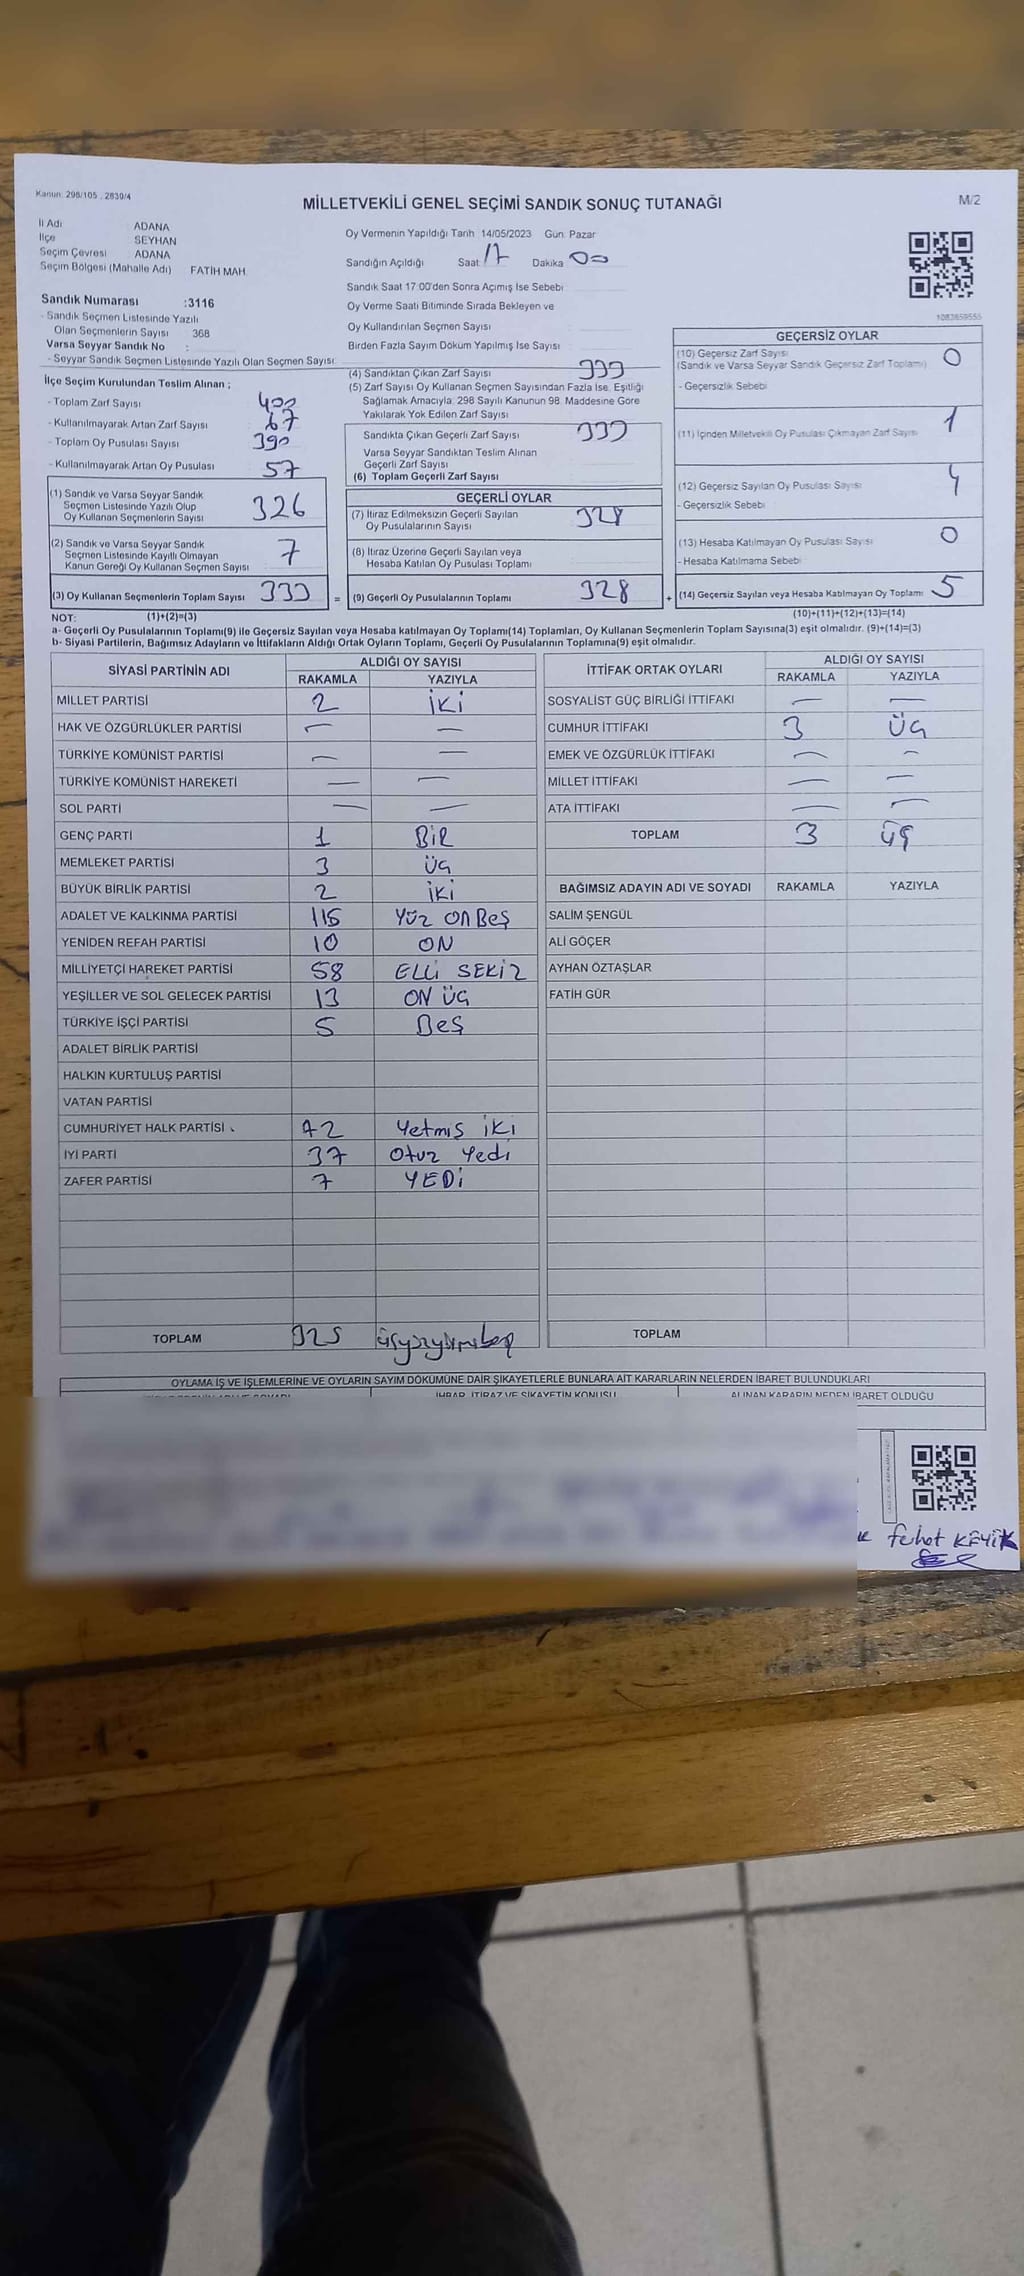 Kanun: 298/105 , 2839/4
MİLLETVEKİLİ GENEL SEÇİMİ SANDIK SONUÇ TUTANAĞI
M/2
İl Adı : ADANA
İlçe : SEYHAN
Seçim Çevresi : ADANA
Seçim Bölgesi (Mahalle Adı) FATİH MAH.
Sandık Numarası :3116
- Sandık Seçmen Listesinde Yazılı
Olan Seçmenlerin Sayısı : 368
Varsa Seyyar Sandık No :
- Seyyar Sandık Seçmen Listesinde Yazılı Olan Seçmen Sayısı:
Oy Vermenin Yapıldığı Tarih 14/05/2023 Gün: Pazar
Sandığın Açıldığı Saat 17 Dakika 00
Sandık Saat 17:00'den Sonra Açımış İse Sebebi
Oy Verme Saati Bitiminde Sırada Bekleyen ve
Oy Kullandırılan Seçmen Sayısı
Birden Fazla Sayım Döküm Yapılmış İse Sayısı
1083859555
İlçe Seçim Kurulundan Teslim Alınan ;
- Toplam Zarf Sayısı 400
- Kullanılmayarak Artan Zarf Sayısı 67
- Toplam Oy Pusulası Sayısı 390
- Kullanılmayarak Artan Oy Pusulası 57
(1) Sandık ve Varsa Seyyar Sandık
Seçmen Listesinde Yazılı Olup
Oy Kullanan Seçmenlerin Sayısı 326
(2) Sandık ve Varsa Seyyar Sandık
Seçmen Listesinde Kayıtlı Olmayan
Kanun Gereği Oy Kullanan Seçmen Sayısı 7
(3) Oy Kullanan Seçmenlerin Toplam Sayısı 333 =
(4) Sandıktan Çıkan Zarf Sayısı 333
(5) Zarf Sayısı Oy Kullanan Seçmen Sayısından Fazla İse, Eşitliği
Sağlamak Amacıyla, 298 Sayılı Kanunun 98. Maddesine Göre
Yakılarak Yok Edilen Zarf Sayısı
Sandıkta Çıkan Geçerli Zarf Sayısı 333
Varsa Seyyar Sandıktan Teslim Alınan
Geçerli Zarf Sayısı
(6) Toplam Geçerli Zarf Sayısı
GEÇERLİ OYLAR
(7) İtiraz Edilmeksizin Geçerli Sayılan
Oy Pusulalarının Sayısı 328
(8) İtiraz Üzerine Geçerli Sayılan veya
Hesaba Katılan Oy Pusulası Toplamı
(9) Geçerli Oy Pusulalarının Toplamı 328 +
GEÇERSİZ OYLAR
(10) Geçersiz Zarf Sayısı 0
(Sandık ve Varsa Seyyar Sandık Geçersiz Zarf Toplamı)
- Geçersizlik Sebebi
(11) İçinden Milletvekili Oy Pusulası Çıkmayan Zarf Sayısı 1
(12) Geçersiz Sayılan Oy Pusulası Sayısı 4
- Geçersizlik Sebebi
(13) Hesaba Katılmayan Oy Pusulası Sayısı 0
- Hesaba Katılmama Sebebi
(14) Geçersiz Sayılan veya Hesaba Katılmayan Oy Toplamı 5
NOT: (1)+(2)=(3) (10)+(11)+(12)+(13)=(14)
a- Geçerli Oy Pusulalarının Toplamı(9) ile Geçersiz Sayılan veya Hesaba katılmayan Oy Toplamı(14) Toplamları, Oy Kullanan Seçmenlerin Toplam Sayısına(3) eşit olmalıdır. (9)+(14)=(3)
b- Siyasi Partilerin, Bağımsız Adayların ve İttifakların Aldığı Ortak Oyların Toplamı, Geçerli Oy Pusulalarının Toplamına(9) eşit olmalıdır.
SİYASİ PARTİNİN ADI ALDIĞI OY SAYISI
RAKAMLA YAZIYLA
MİLLET PARTİSİ 2 İKİ
HAK VE ÖZGÜRLÜKLER PARTİSİ — —
TÜRKİYE KOMÜNİST PARTİSİ — —
TÜRKİYE KOMÜNİST HAREKETİ — —
SOL PARTİ — —
GENÇ PARTİ 1 BİR
MEMLEKET PARTİSİ 3 ÜÇ
BÜYÜK BİRLİK PARTİSİ 2 İKİ
ADALET VE KALKINMA PARTİSİ 115 YÜZ ON BEŞ
YENİDEN REFAH PARTİSİ 10 ON
MİLLİYETÇİ HAREKET PARTİSİ 58 ELLİ SEKİZ
YEŞİLLER VE SOL GELECEK PARTİSİ 13 ON ÜÇ
TÜRKİYE İŞÇİ PARTİSİ 5 BEŞ
ADALET BİRLİK PARTİSİ
HALKIN KURTULUŞ PARTİSİ
VATAN PARTİSİ
CUMHURİYET HALK PARTİSİ 72 Yetmiş iki
İYİ PARTİ 37 Otuz Yedi
ZAFER PARTİSİ 7 YEDİ
TOPLAM 325 üçyüzyirmibeş
İTTİFAK ORTAK OYLARI ALDIĞI OY SAYISI
RAKAMLA YAZIYLA
SOSYALİST GÜÇ BİRLİĞİ İTTİFAKI — —
CUMHUR İTTİFAKI 3 ÜÇ
EMEK VE ÖZGÜRLÜK İTTİFAKI — —
MİLLET İTTİFAKI — —
ATA İTTİFAKI — —
TOPLAM 3 üç
BAĞIMSIZ ADAYIN ADI VE SOYADI RAKAMLA YAZIYLA
SALİM ŞENGÜL
ALİ GÖÇER
AYHAN ÖZTAŞLAR
FATİH GÜR
TOPLAM
OYLAMA İŞ VE İŞLEMLERİNE VE OYLARIN SAYIM DÖKÜMÜNE DAİR ŞİKAYETLERLE BUNLARA AİT KARARLARIN NELERDEN İBARET BULUNDUKLARI
İHBAR, İTİRAZ VE ŞİKAYETİN KONUSU ALINAN KARARIN NEDEN İBARET OLDUĞU